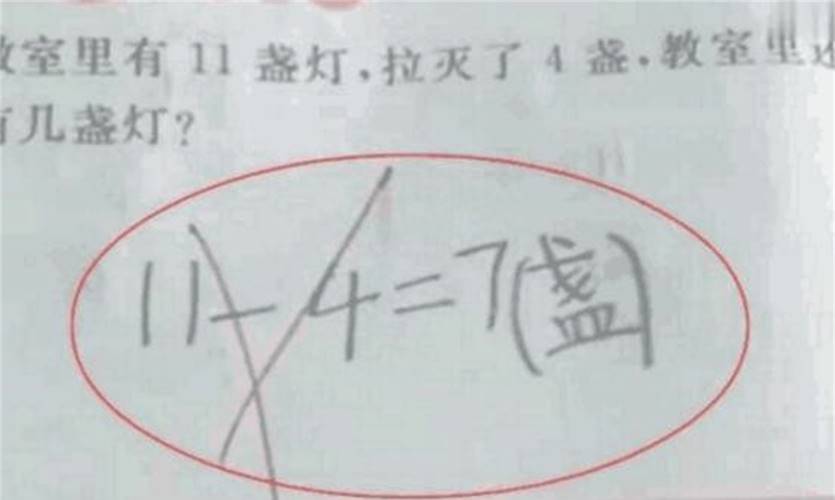 室里有 11 盏灯,拉灭了 4 盏.教室里
几盏灯?
11-4=7(盏)